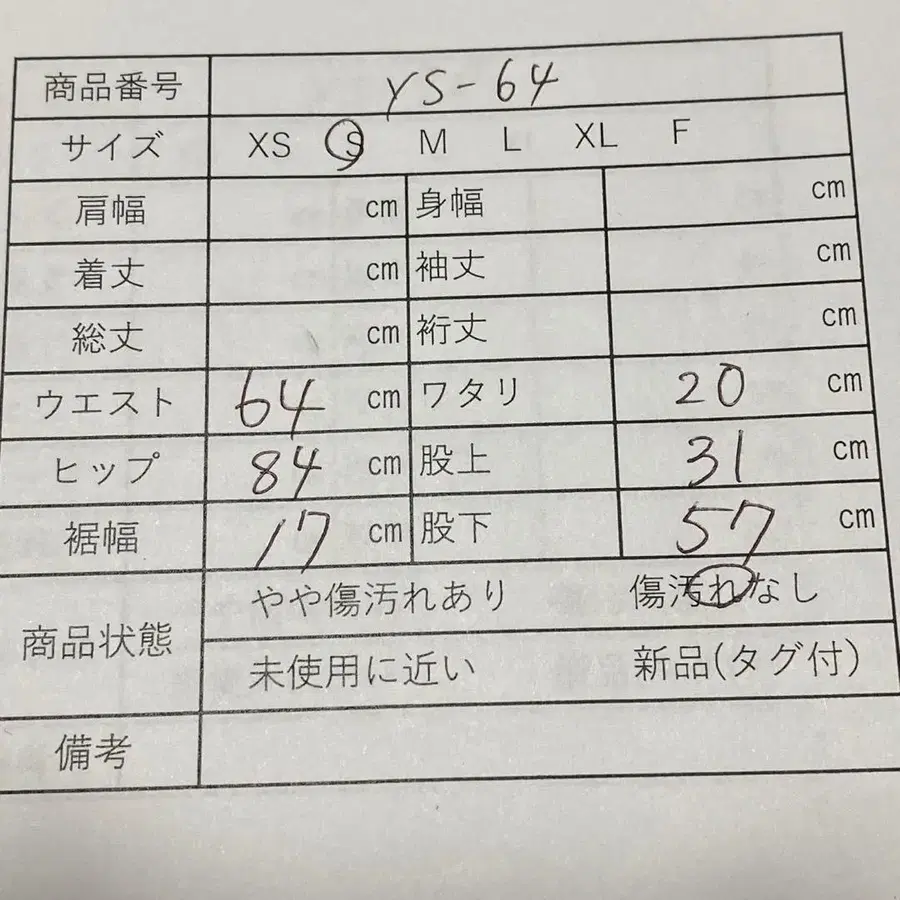 商品番号 YS-64
サイズ XS S M L XL F
肩幅 cm 身幅 cm
着丈 cm 袖丈 cm
総丈 cm 裄丈 cm
ウエスト 64 cm ワタリ 20 cm
ヒップ 84 cm 股上 31 cm
裾幅 17 cm 股下 57 cm
商品状態 やや傷汚れあり 傷汚れなし
未使用に近い 新品(タグ付)
備考